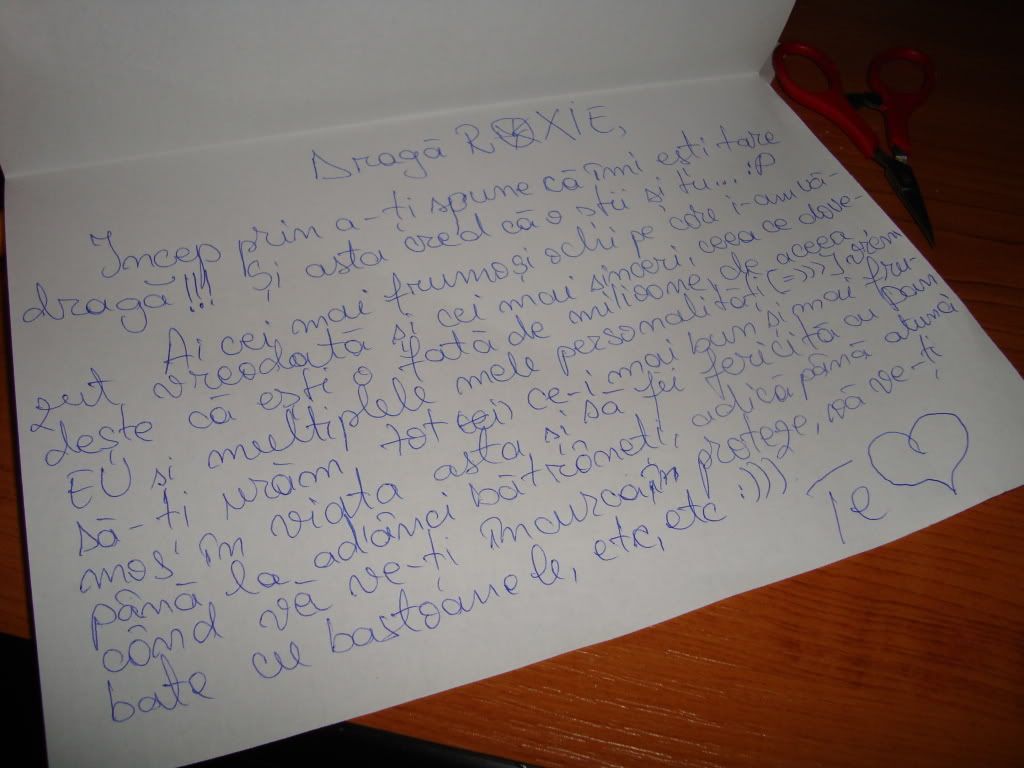 Dragă ROXIE,
Încep prin a-ți spune că îmi ești tare
dragă!!! Și asta cred că o știi și tu... :P
Ai cei mai frumoși ochi pe care i-am vă-
zut vreodată și cei mai sinceri, ceea ce dove-
dește că ești o fată de milioane, de aceea,
EU și multiplele mele personalități (=))) îți vrem
să-ți urăm tot ce-i mai bun și mai fru-
mos în viața asta și să fii fericită cu
până la adânci bătrâneți, adică până atunci
când vă ve-ți încurca în proteze, vă ve-ți
bate cu bastoanele, etc, etc :)))).
Te